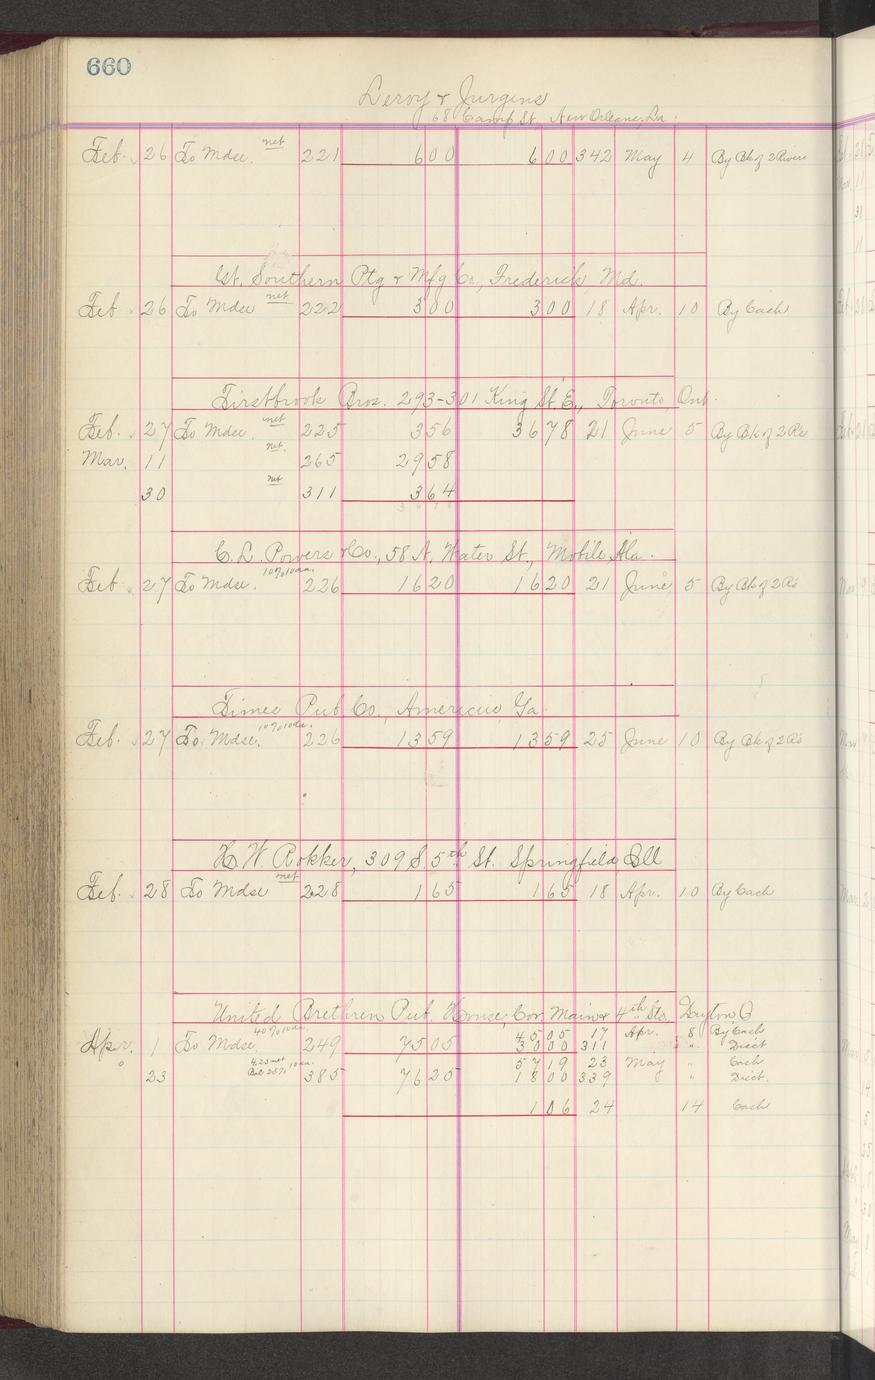 660
Leroy & Jurgens
68 Camp St. New Orleans, La.
Feb. 26 To Mdse. net 221 6 00 6 00 342 May 4 By Bk of 2
St. Southern Ptg & Mfg Co., Frederick Md.
Feb 26 To Mdse net 222 3 00 3 00 18 Apr. 10 By Cash
Firstbrook Bros. 293-301 King St. E., Toronto, Ont.
Feb. 27 To Mdse. net 225 3 56 36 78 21 June 5 By Bk of 2 Rc
Mar. 11 net. 265 29 58
30 net 311 3 64
36 78
C. L. Powers & Co., 58 N. Water St., Mobile Ala.
Feb 27 To Mdse. 10% 10da. 226 16 20 16 20 21 June 5 By Bk of 2 Rc
Times Pub Co., Americus, Ga.
Feb. 27 To Mdse. 10% 10da. 226 13 59 13 59 25 June 10 By Bk of 2 Rc
H. W. Rokker, 309 S. 5th St. Springfield Ill
Feb. 28 To Mdse net 228 1 65 1 65 18 Apr. 10 By Cash
United Brethren Pub. House, Cor. Main & 4th Sts. Dayton, O
Apr. 1 To Mdse 40% 10da. 249 75 05 45 05 17 Apr. 8 By Cash
30 00 311 " Disct
23 4.25 net Bal 25% 10da. 385 76 25 57 19 23 May " Cash
18 00 339 " Disct.
1 06 24 14 Cash